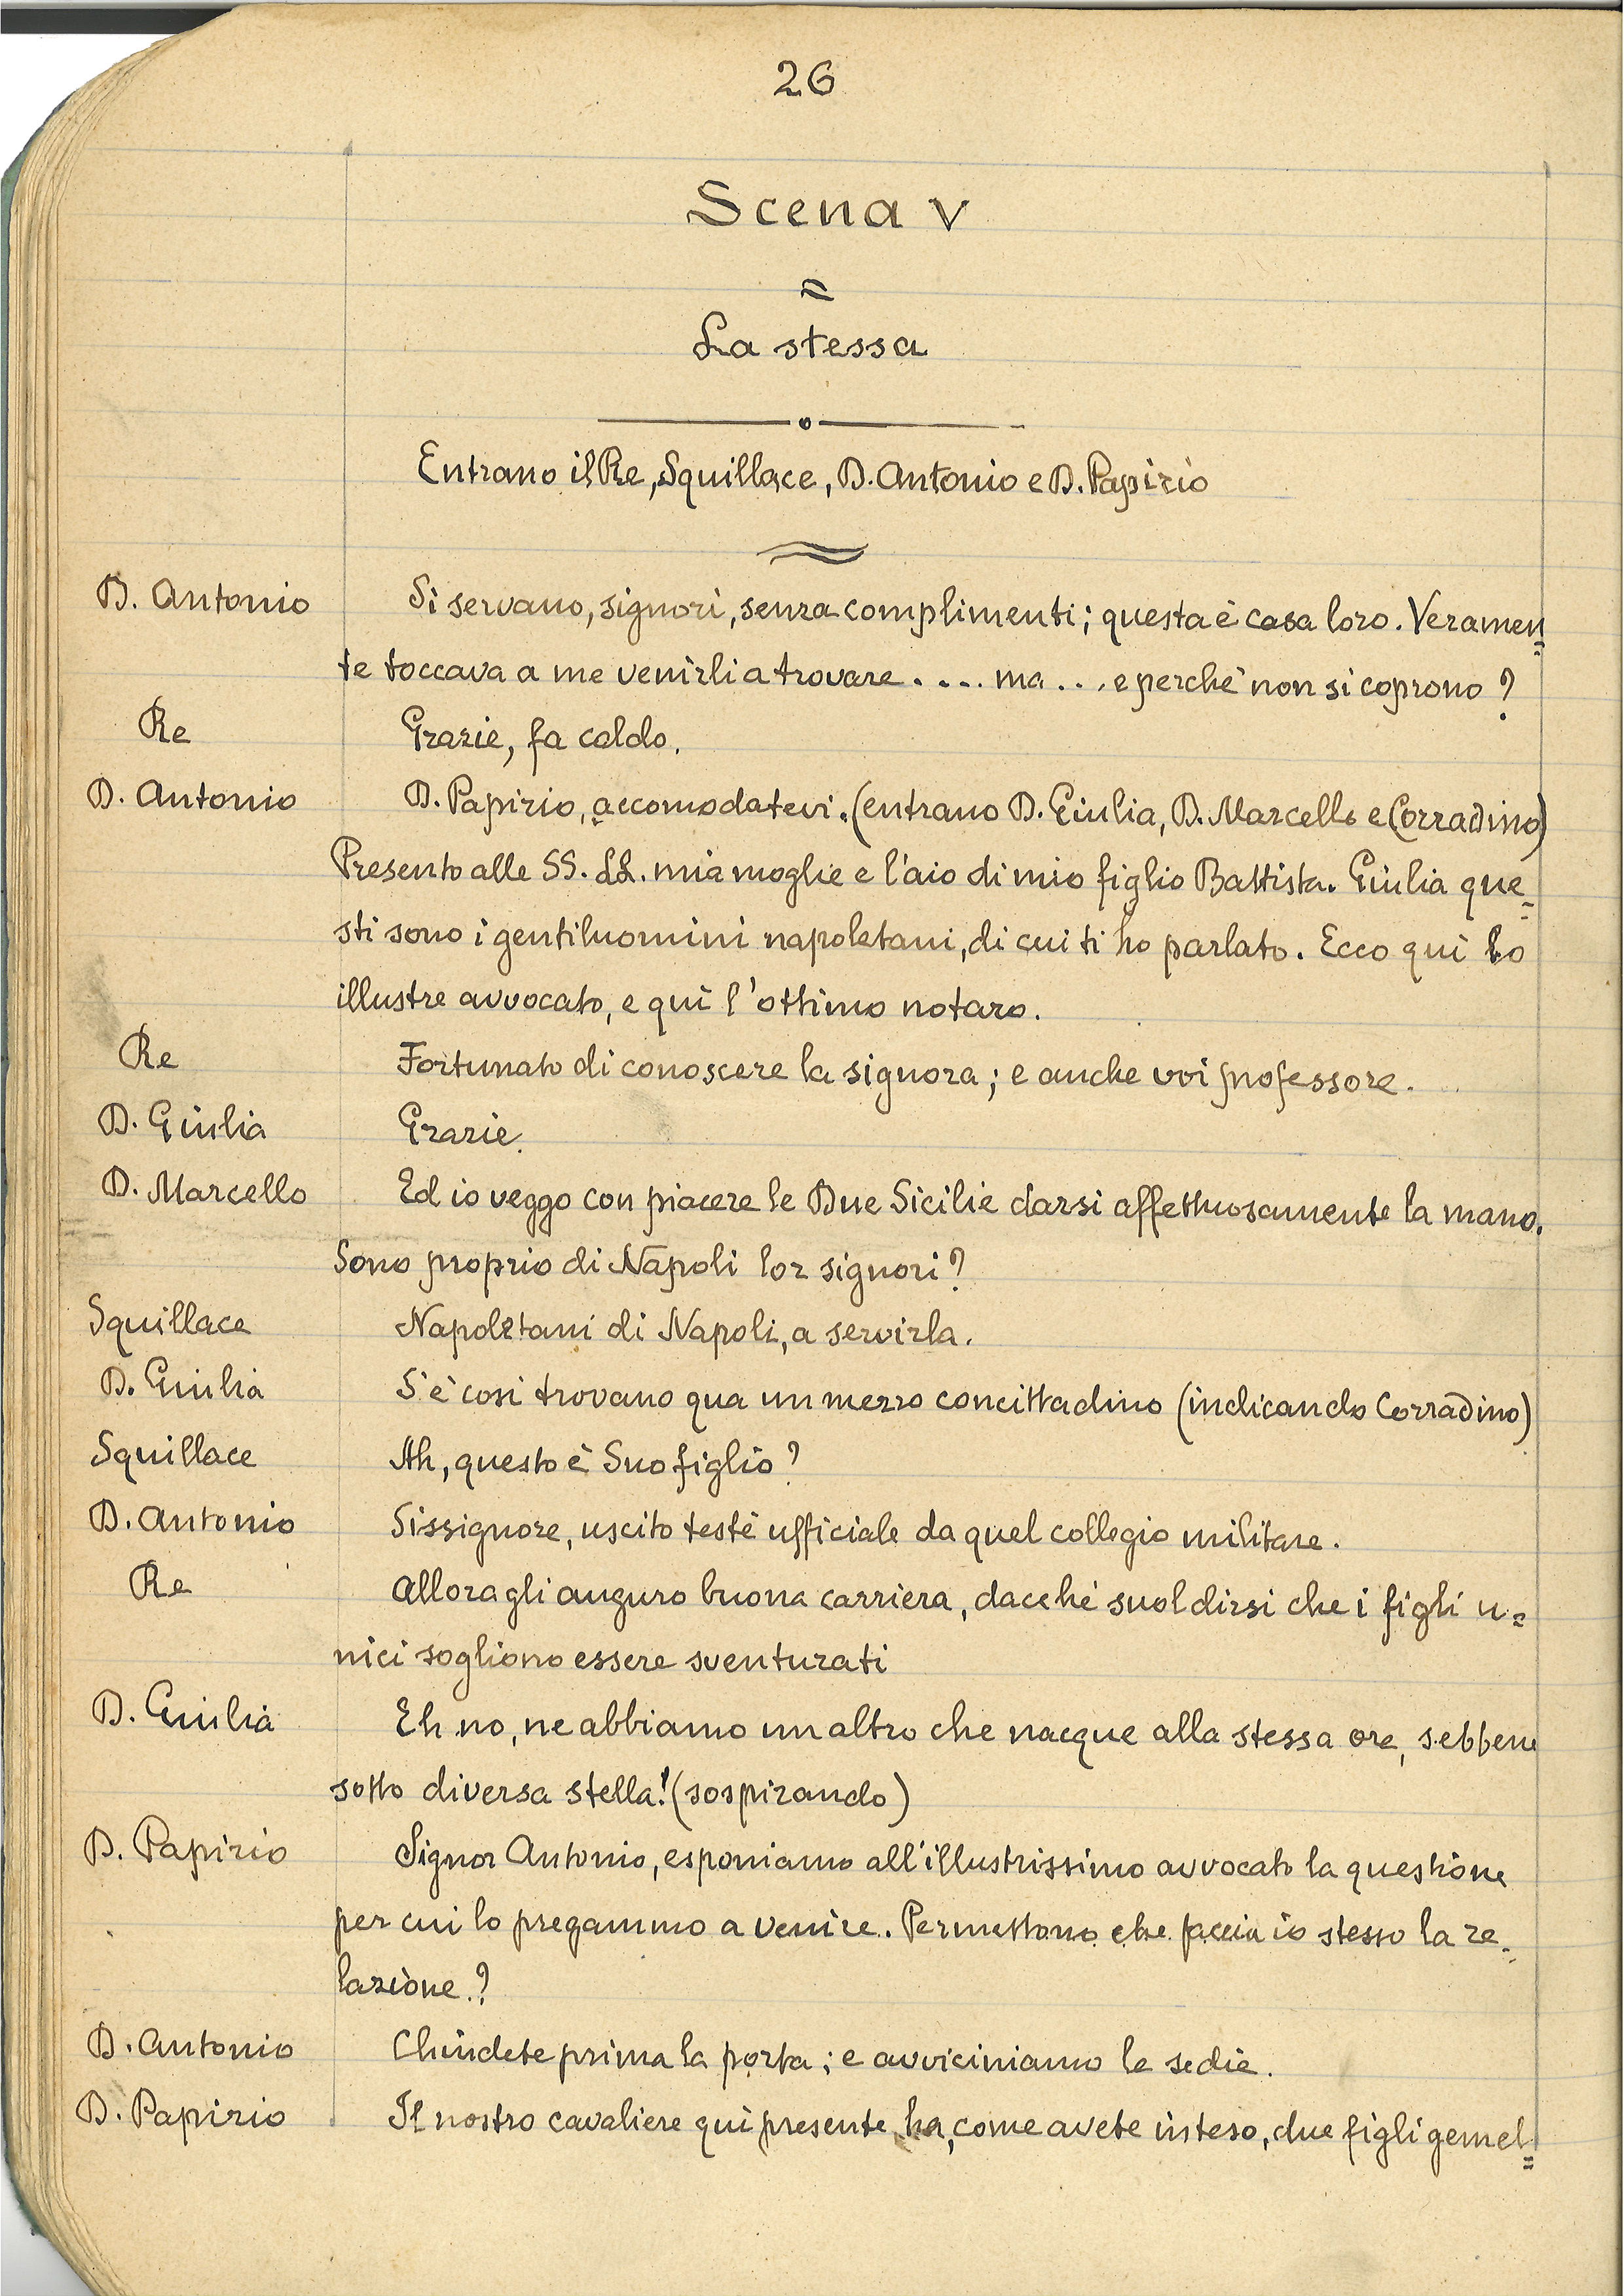 26
Scena V
La stessa
Entrano il Re, Squillace, D. Antonio e D. Papirio
D. Antonio Si servano, signori, senza complimenti; questa è casa loro. Veramen=
te toccava a me venirli a trovare. ... ma ... e perchè non si coprono?
Re Grazie, fa caldo.
D. Antonio D. Papirio, accomodatevi. (entrano D. Giulia, D. Marcello e Corradino)
Presento alle SS. LL. mia moglie e l'aio di mio figlio Battista. Giulia que=
sti sono i gentiluomini napoletani, di cui ti ho parlato. Ecco qui lo
illustre avvocato, e qui l'ottimo notaro.
Re Fortunato di conoscere la signora; e anche voi professore.
D. Giulia Grazie.
D. Marcello Ed io veggo con piacere le Due Sicilie darsi affettuosamente la mano.
Sono proprio di Napoli lor signori?
Squillace Napoletani di Napoli, a servirla.
D. Giulia S'è così trovano qua un mezzo concittadino (indicando Corradino)
Squillace Ah, questo è Suo figlio?
D. Antonio Sissignore, uscito testè ufficiale da quel collegio militare.
Re Allora gli auguro buona carriera, dacchè suol dirsi che i figli u=
nici sogliono essere sventurati
D. Giulia Eh no, ne abbiamo un altro che nacque alla stessa ora, sebbene
sotto diversa stella! (sospirando)
D. Papirio Signor Antonio, esponiamo all'illustrissimo avvocato la questione
per cui lo pregammo a venire. Permettono che faccia io stesso la re=
lazione?
D. Antonio Chiudete prima la porta; e avviciniamo le sedie.
D. Papirio Il nostro cavaliere qui presente ha, come avete inteso, due figli gemel=